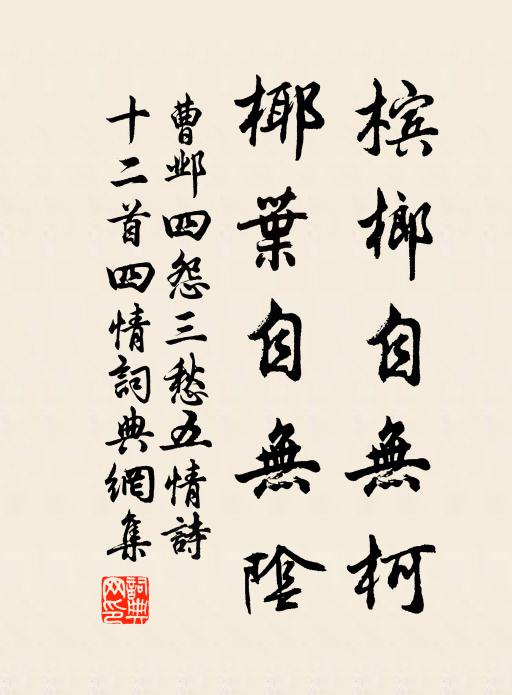 槟榔自無柯
椰葉自無陰
曹邺四怨三愁五情詩
十二首四情詞典網集
詞典網印